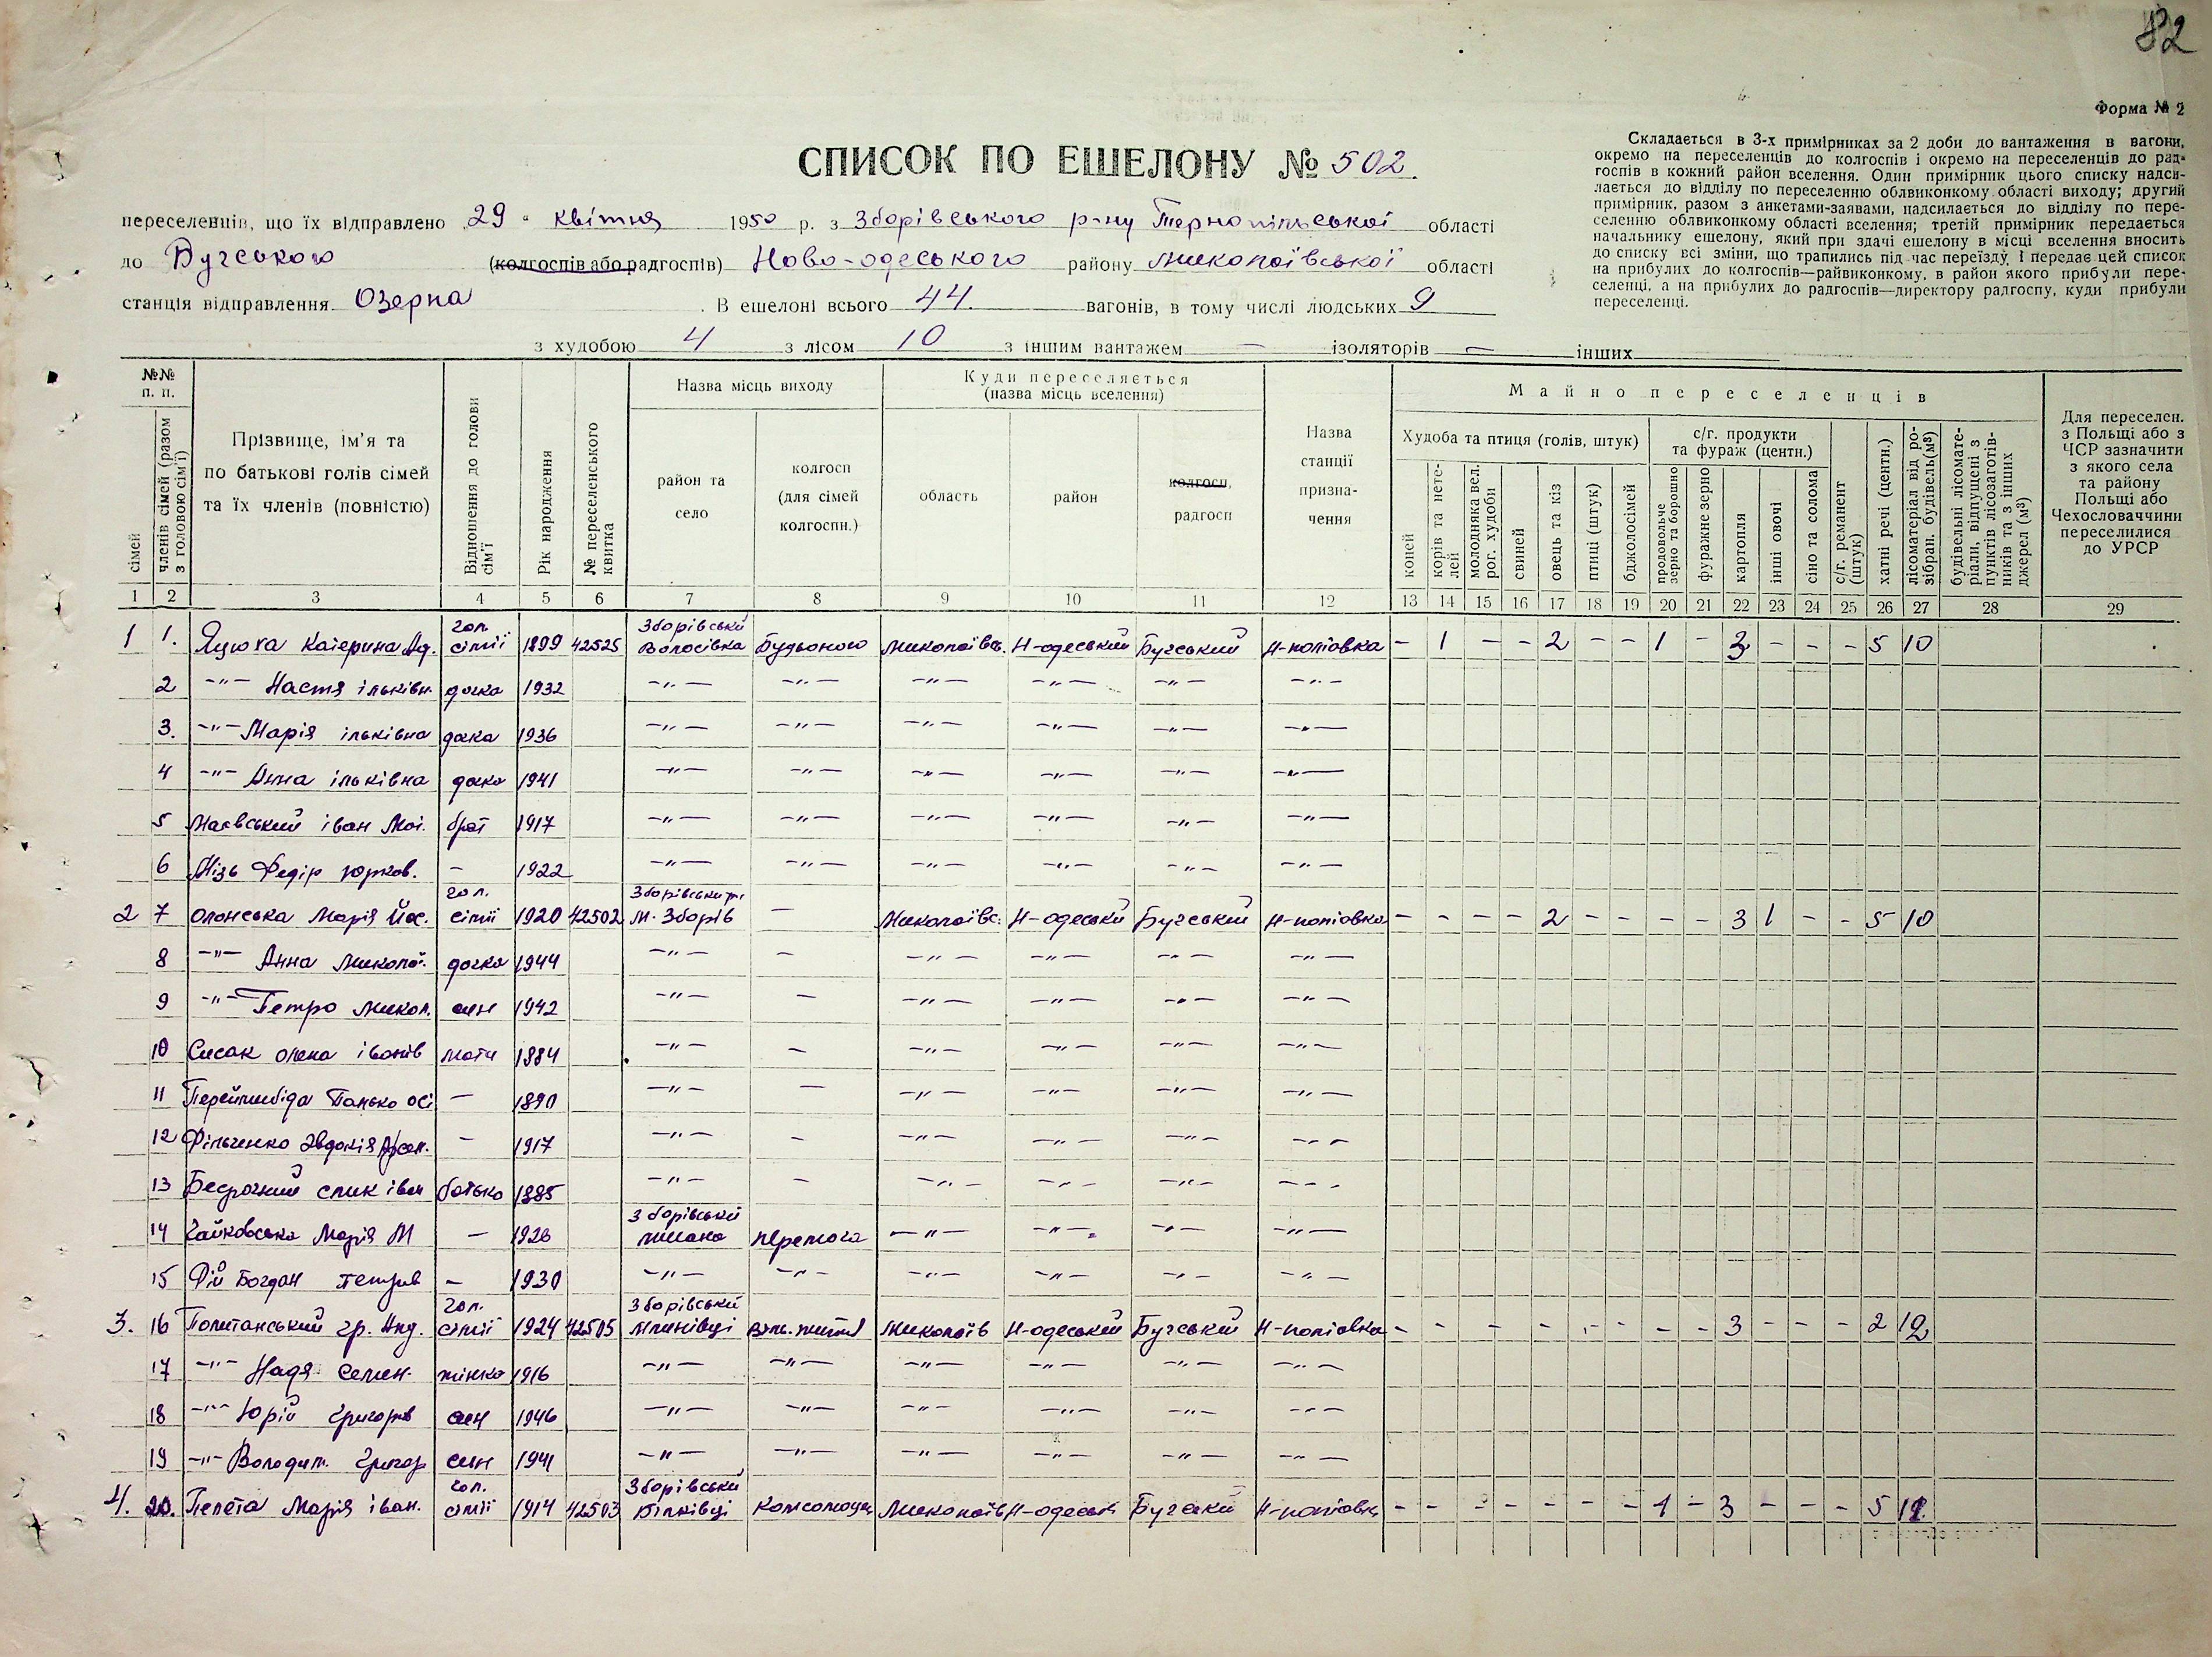 82
Форма № 2
СПИСОК ПО ЕШЕЛОНУ № 502
Складається в 3-х примірниках за 2 доби до вантаження в вагони,
окремо на переселенців до колгоспів і окремо на переселенців до рад-
госпів в кожний район вселення. Один примірник цього списку надси-
лається до відділу по переселенню облвиконкому області виходу; другий
примірник, разом з анкетами-заявами, надсилається до відділу по пере-
селенню облвиконкому області вселення; третій примірник передається
начальнику ешелону, який при здачі ешелону в місці вселення вносить
до списку всі зміни, що трапились під час переїзду. І передає цей список
на прибулих до колгоспів—райвиконкому, в район якого прибули пере-
селенці, а на прибулих до радгоспів—директору радгоспу, куди прибули
переселенці.
переселенців, що їх відправлено „29" квітня 1950 р. з Зборівського р-ну Тернопільської області
до Бугського (колгоспів або радгоспів) Ново-одеського району Миколаївської області
станція відправлення Озерна. В ешелоні всього 44 вагонів, в тому числі людських 9
з худобою 4 з лісом 10 з іншим вантажем — ізоляторів — інших
№№ п. п.
сімей
членів сімей (разом з головою сім'ї)
Прізвище, ім'я та
по батькові голів сімей
та їх членів (повністю)
Відношення до голови сім'ї
Рік народження
№ переселенського квитка
Назва місць виходу
район та село
колгосп (для сімей колгоспн.)
Куди переселяється
(назва місць вселення)
область
район
колгосп, радгосп
Назва станції призна-чення
Майно переселенців
Худоба та птиця (голів, штук)
коней
корів та нете-лей
молодняка вел. рог. худоби
свиней
овець та кіз
птиці (штук)
бджолосімей
с/г. продукти та фураж (центн.)
продовольче зерно та борошно
фуражне зерно
картопля
інші овочі
сіно та солома
с/г. реманент (штук)
хатні речі (центн.)
лісоматеріал від ро-зібран. будівель (м³)
будівельні лісомате-ріали, відпущені з пунктів лісозаготів-ників та з інших джерел (м³)
Для переселен.
з Польщі або з
ЧСР зазначити
з якого села
та району
Польщі або
Чехословаччини
переселилися
до УРСР
1 2 3 4 5 6 7 8 9 10 11 12 13 14 15 16 17 18 19 20 21 22 23 24 25 26 27 28 29
1 1. Катерина гол. сімії 1899 42525 Зборівський Волосівка Будьоного Миколаївс. Н-одеський Бугський Н-попіовка – 1 – – 2 – – 1 – 3 – – – 5 10
2 –"– Настя ільківн. дочка 1932 –"– –"– –"– –"– –"– –"–
3. –"– Марія ільківна дочка 1936 –"– –"– –"– –"– –"– –"–
4 –"– Анна ільківна дочка 1941 –"– –"– –"– –"– –"– –"–
5 Маєвський іван брат 1917 –"– –"– –"– –"– –"– –"–
6 Федір юрков. – 1922 –"– –"– –"– –"– –"– –"–
2 7 Олонська Марія Йос. гол. сімії 1920 42502 Зборівський м. Зборів – Миколаївс. Н-одеський Бугський Н-попіовка – – – – 2 – – – – 3 1 – – 5 10
8 –"– Анна Миколаї. дочка 1944 –"– – –"– –"– –"– –"–
9 –"– Петро микол. син 1942 –"– – –"– –"– –"– –"–
10 Сисак олена іванів мати 1884 –"– – –"– –"– –"– –"–
11 Панько – 1890 –"– – –"– –"– –"– –"–
12 Фільченко Євдокія – 1917 –"– – –"– –"– –"– –"–
13 батько 1885 –"– – –"– –"– –"– –"–
14 Чайковська Марія М – 1926 Зборівський перемога –"– –"– –"– –"–
15 Фій Богдан петрів – 1930 –"– –"– –"– –"– –"– –"–
3. 16 гр. Анд. гол. сімії 1924 42505 Зборівський Млинівці Віль. життя Миколаїв Н-одеський Бугський Н-попіовка – – – – – – – – – 3 – – – 2 12
17 –"– Надя Семен. жінка 1916 –"– –"– –"– –"– –"– –"–
18 –"– Юрій Григорів син 1946 –"– –"– –"– –"– –"– –"–
19 –"– Володим. Григор син 1941 –"– –"– –"– –"– –"– –"–
4. 20. Марія іван. гол. сімії 1914 42503 Зборівський Білківці Комсомолец Миколаїв Н-одеськ Бугський Н-попіовка – – – – – – – 1 – 3 – – – 5 12.